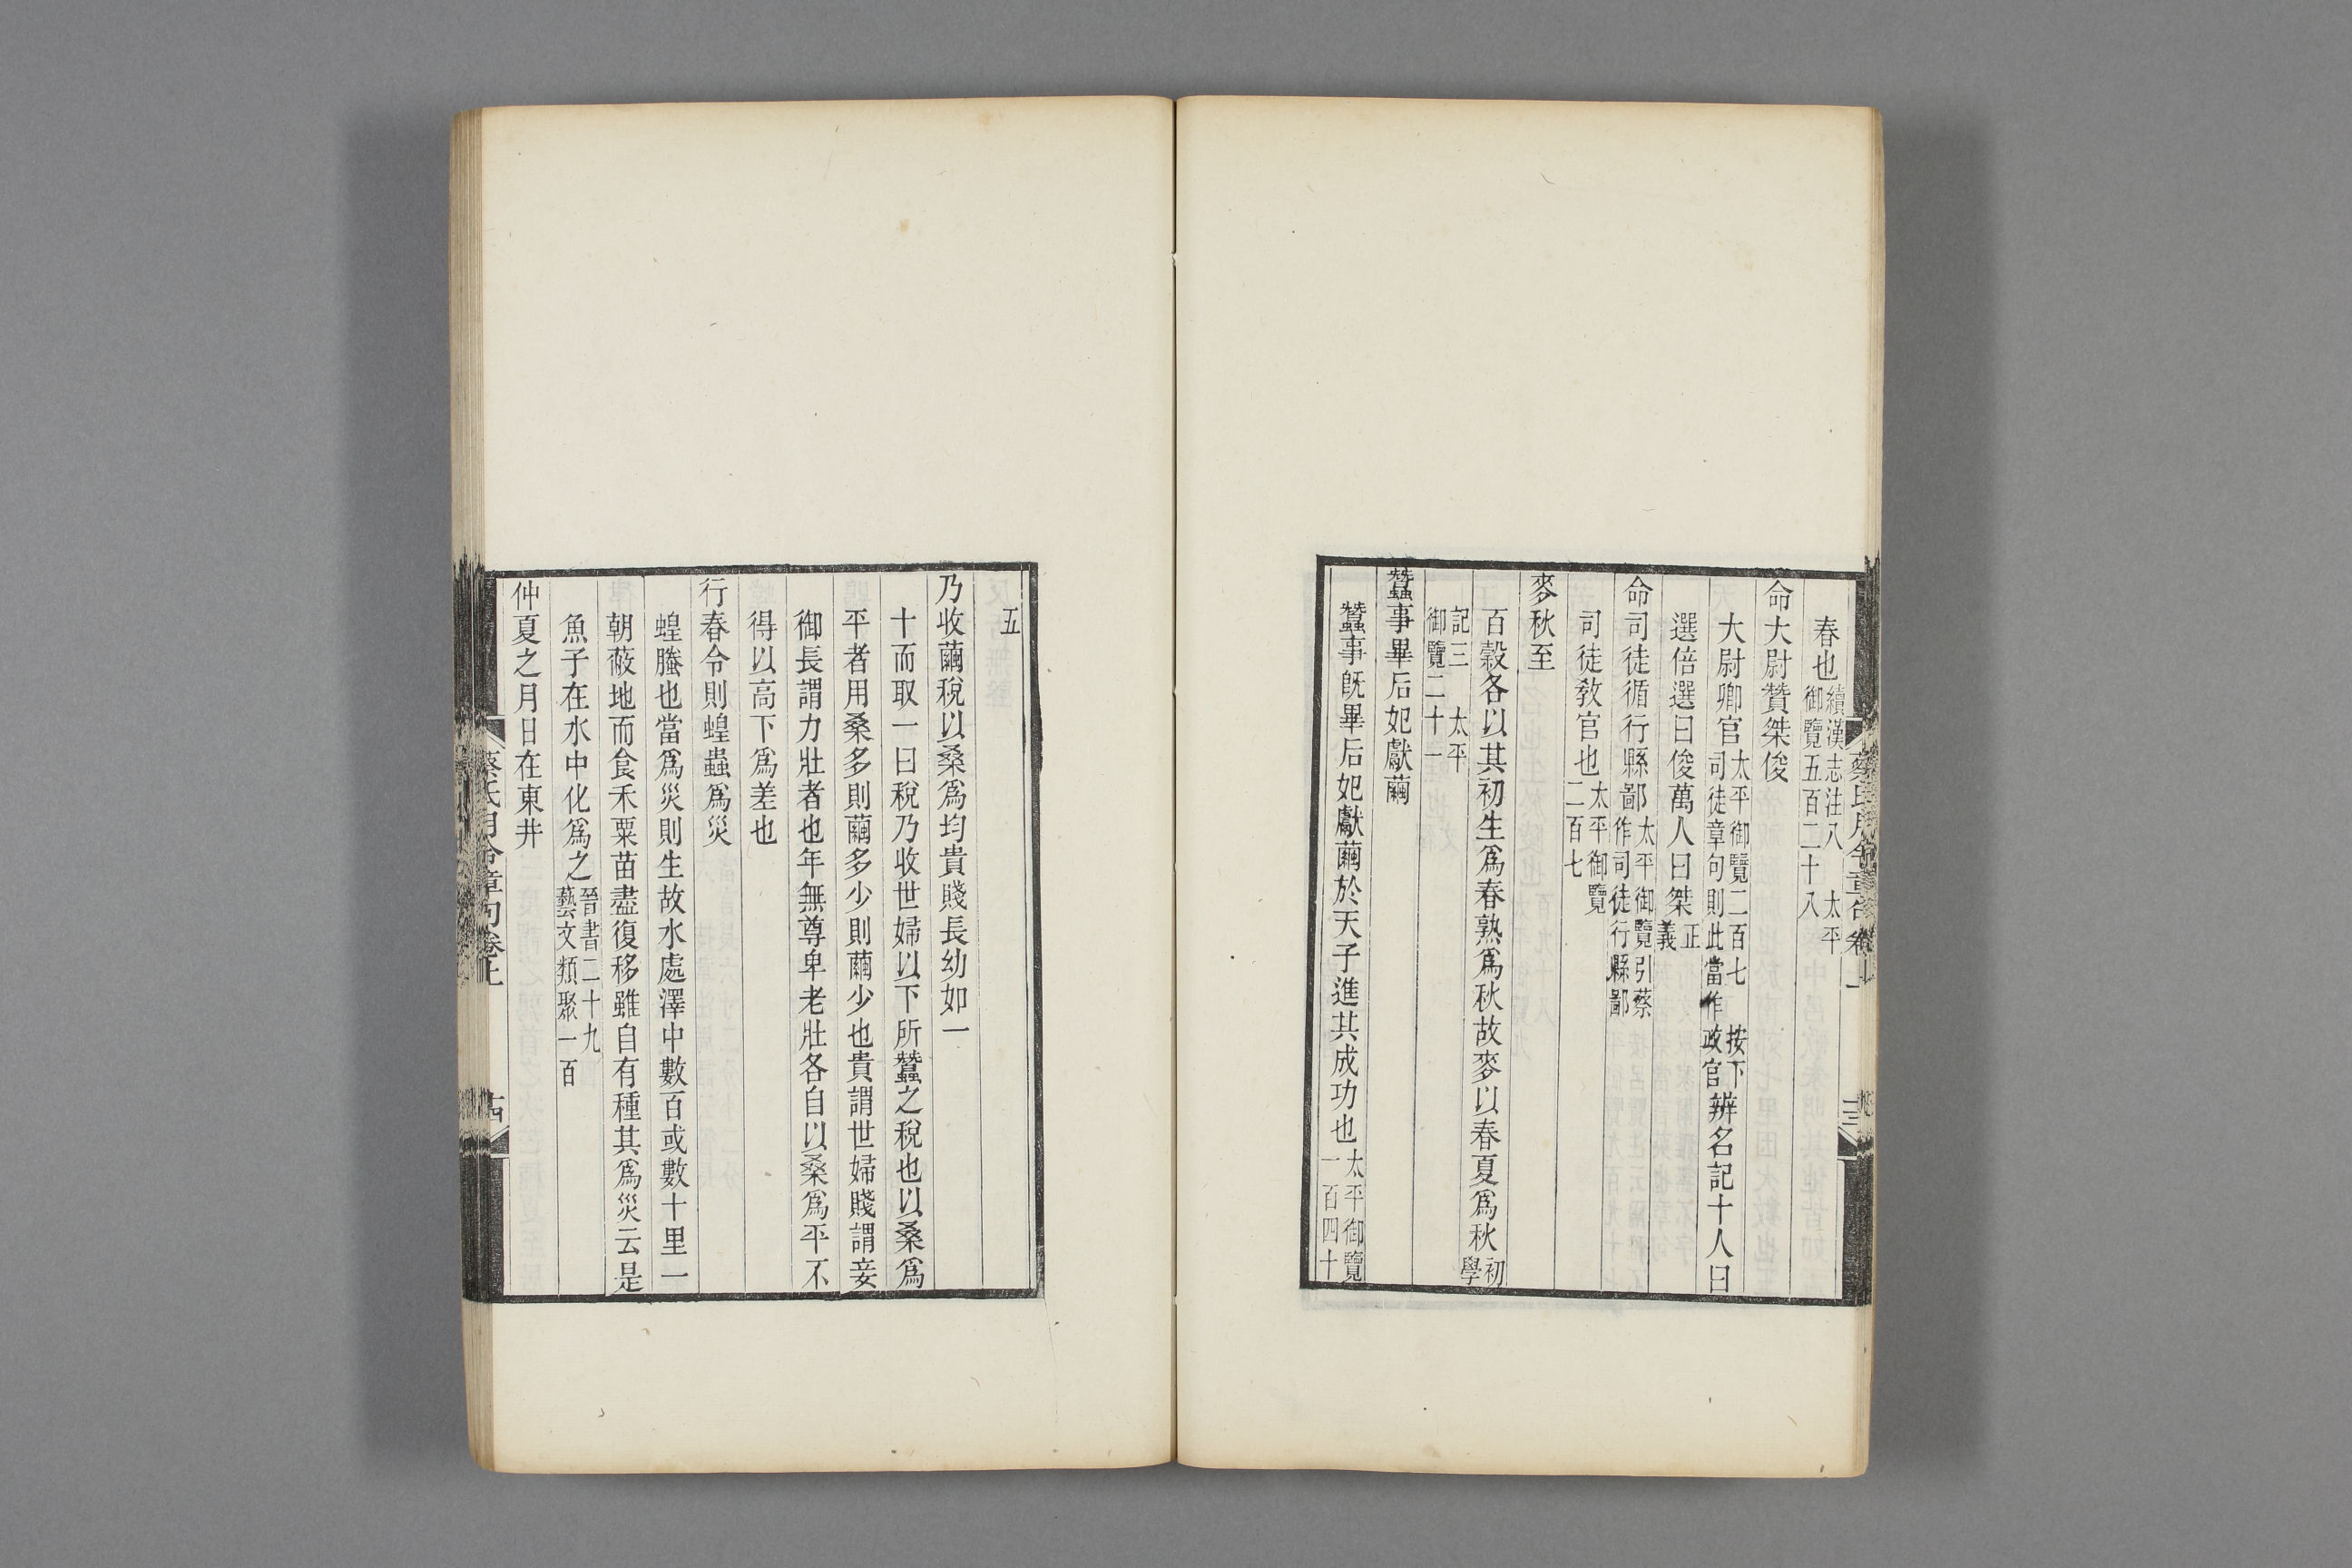 春也續漢志注八　太平御覽五百二十八
命大尉贊桀俊
大尉卿官太平御覽二百七　按下司徒章句則此當作政官辨名記十人曰
選倍選曰俊萬人曰桀正義
命司徒循行縣鄙太平御覽引蔡作司徒行縣鄙
司徒敎官也太平御覽二百七
麥秋至
百穀各以其初生爲春熟爲秋故麥以春夏爲秋初學
記三　太平御覽二十一
蠶事畢后妃獻繭
蠶事旣畢后妃獻繭於天子進其成功也太平御覽一百四十
蔡氏月令章句卷上
十三
五
乃收繭稅以桑爲均貴賤長幼如一
十而取一曰稅乃收世婦以下所蠶之稅也以桑爲
平者用桑多則繭多少則繭少也貴謂世婦賤謂妾
御長謂力壯者也年無尊卑老壯各自以桑爲平不
得以高下爲差也
行春令則蝗蟲爲災
蝗螣也當爲災則生故水處澤中數百或數十里一
朝蔽地而食禾粟苗盡復移雖自有種其爲災云是
魚子在水中化爲之晉書二十九藝文類聚一百
仲夏之月日在東井
蔡氏月令章句卷上
十四